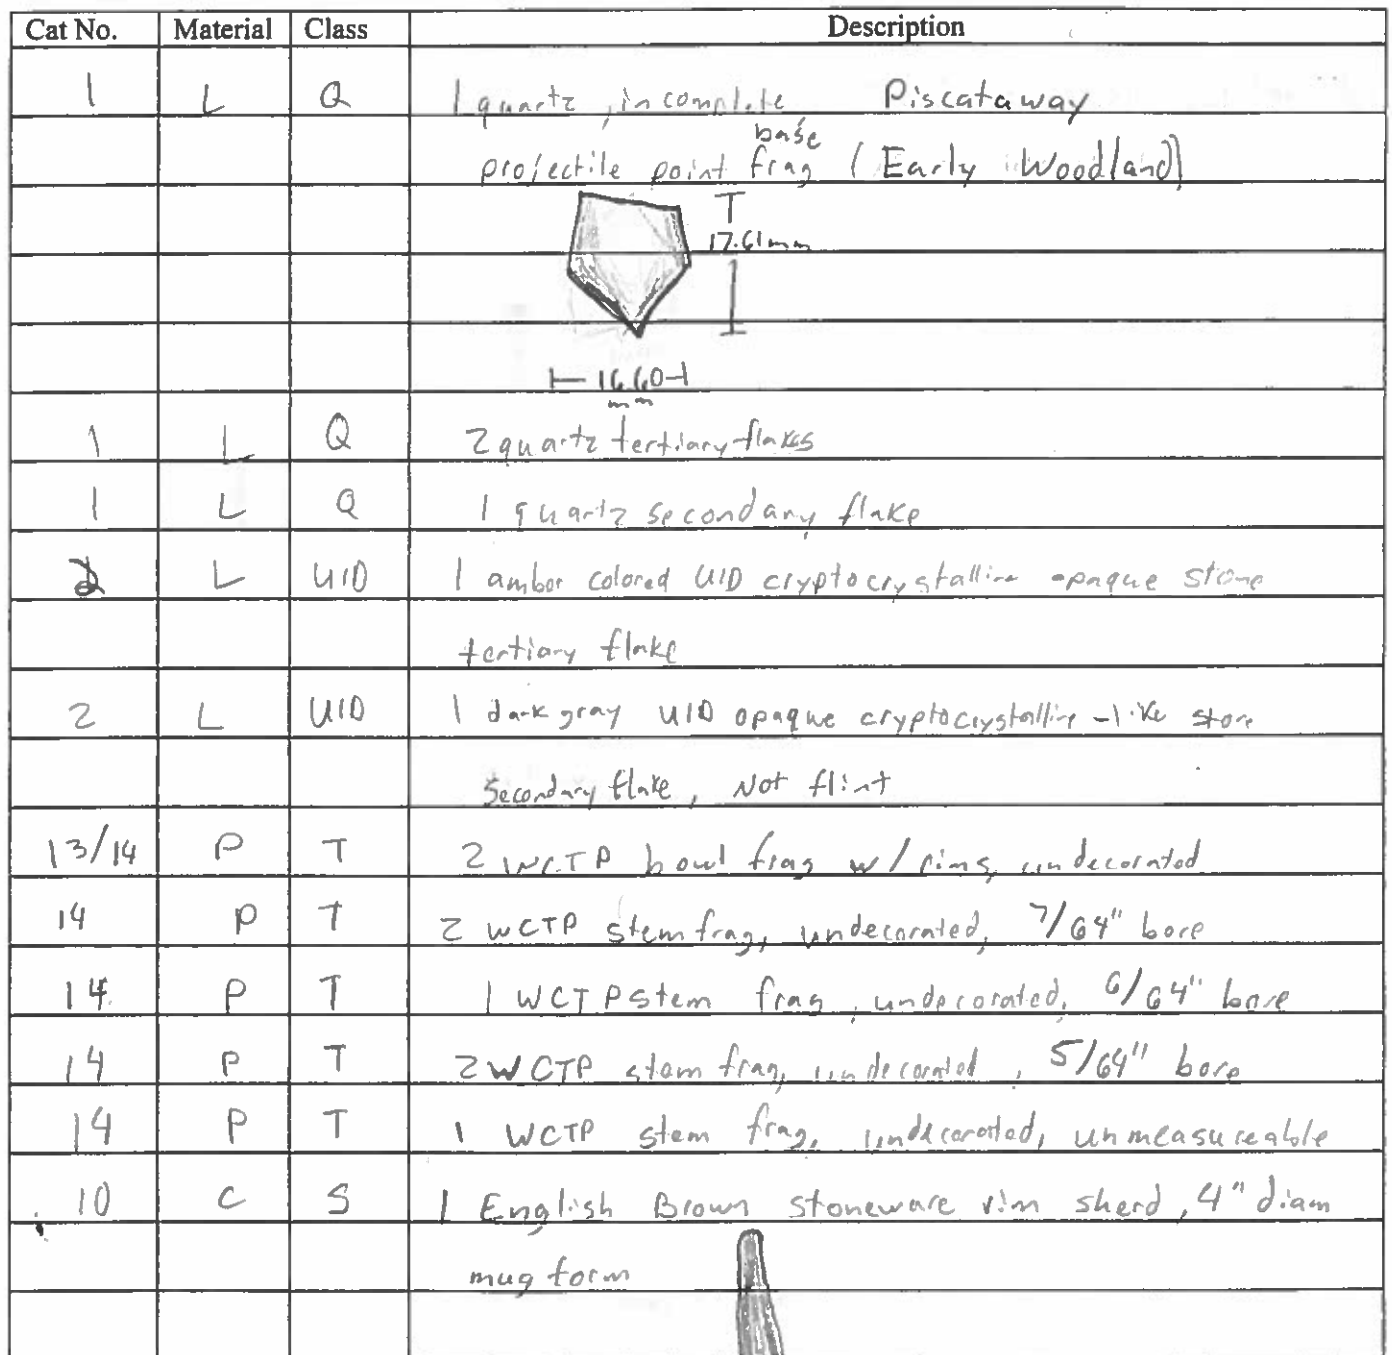 Cat No. Material Class Description
1 L Q 1 quartz, incomplete Piscataway
base
projectile point frag (Early Woodland)
17.61mm
16.60
mm
1 L Q 2 quartz tertiary flakes
1 L Q 1 quartz secondary flake
2 L UID 1 amber colored UID cryptocrystalline opaque stone
tertiary flake
2 L UID 1 dark gray UID opaque cryptocrystalline-like stone
Secondary flake, Not flint
13/14 P T 2 WCTP bowl frag w/ rims, undecorated
14 P T 2 WCTP stem frag, undecorated, 7/64" bore
14 P T 1 WCTP stem frag, undecorated, 6/64" bore
14 P T 2 WCTP stem frag, undecorated, 5/64" bore
14 P T 1 WCTP stem frag, undecorated, unmeasureable
10 C S 1 English Brown stoneware rim sherd, 4" diam
mug form